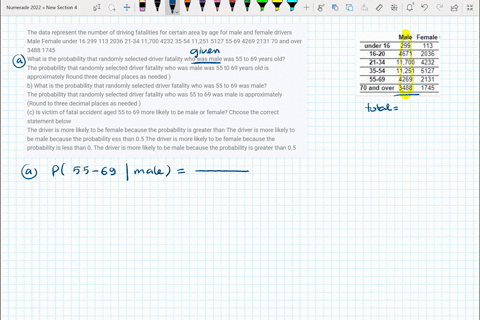 Numerade 2022 » New Section 4
The data represent the number of driving fatalities for certain area by age for male and female drivers
Male Female under 16 299 113 2036 21-34 11,700 4232 35-54 11,251 5127 55-69 4269 2131 70 and over
3488 1745
given
a What is the probability that randomly selected driver fatality who was male was 55 to 69 years old?
The probability that randomly selected driver fatality who was male was 55 to 69 years old is
approximately Round three decimal places as needed )
b) What is the probability that randomly selected driver fatality who was 55 to 69 was male?
The probability that randomly selected driver fatality who was 55 to 69 was male is approximately
(Round to three decimal places as needed )
(c) Is victim of fatal accident aged 55 to 69 more likely to be male or female? Choose the correct
statement below
The driver is more likely to be female because the probability is greater than The driver is more likely to
be male because the probability ess than 0.5 The driver is more likely to be female because the
probability is less than 0. The driver is more likely to be male because the probability is greater than 0.5
Male Female
under 16 299 113
16-20 4671 2036
21-34 11,700 4232
35-54 11,251 5127
55-69 4269 2131
70 and over 3488 1745
total =
a P( 55-69 | male) =